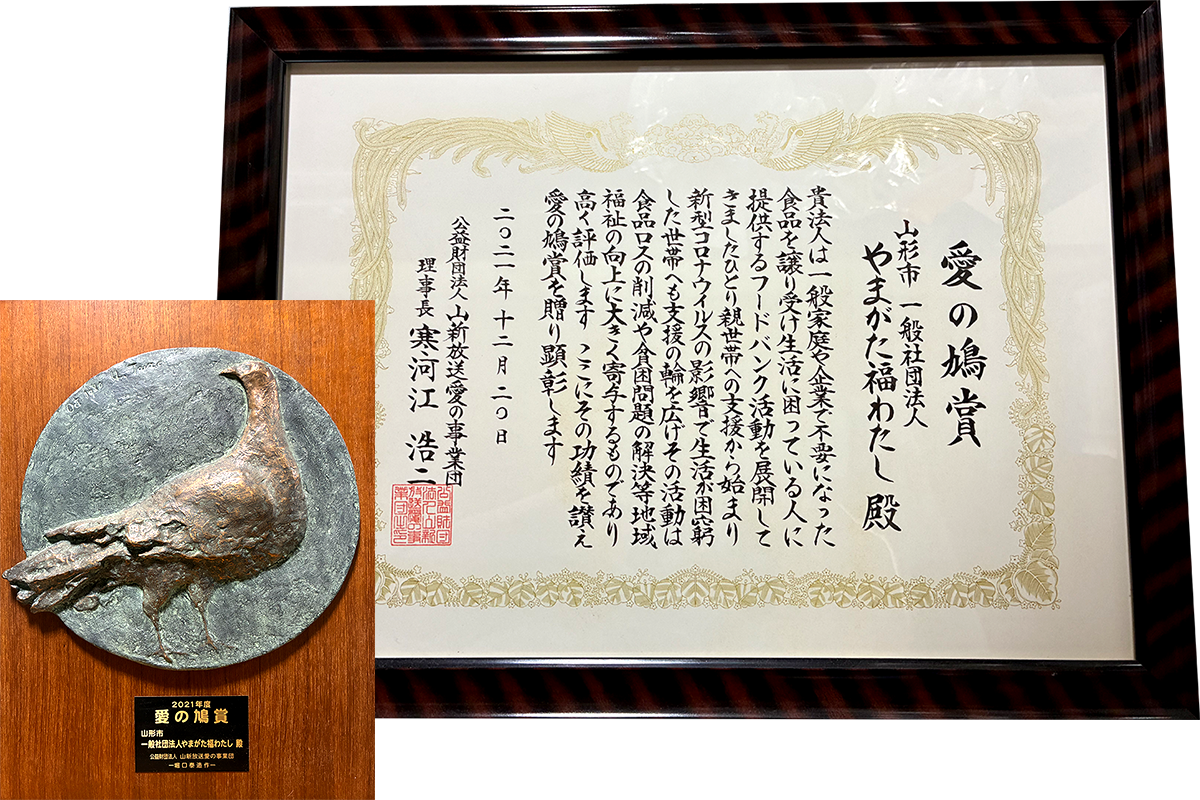 愛の鳩賞
山形市 一般社団法人
やまがた福わたし 殿
貴法人は一般家庭や企業で不要になった
食品を譲り受け生活に困っている人に
提供するフードバンク活動を展開して
きましたひとり親世帯への支援から始まり
新型コロナウイルスの影響で生活が困窮
した世帯へも支援の輪を広げその活動は
食品ロスの削減や貧困問題の解決等地域
福祉の向上に大きく寄与するものであり
高く評価します ここにその功績を讃え
愛の鳩賞を贈り顕彰します
二〇二一年 十二月 二〇日
公益財団法人 山新放送愛の事業団
理事長 寒河江 浩二
2021年度
愛の鳩賞
山形市
一般社団法人やまがた福わたし 殿
公益財団法人 山新放送愛の事業団
ー堀口泰造作ー